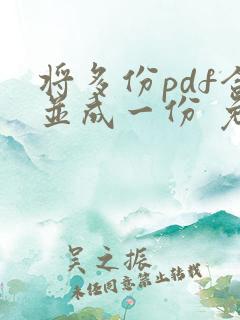 将多份pdf合
并成一份 免
吴之振
未经同意禁止转载